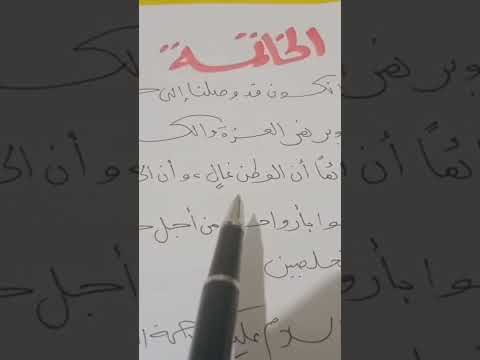 الخاتمة
نكون قد وصلنا إلى
العزة والك
ائمًا أن الوطن غالٍ، وأن ال
وا بأرواح من أجل
مخلصين
السلام عليكم